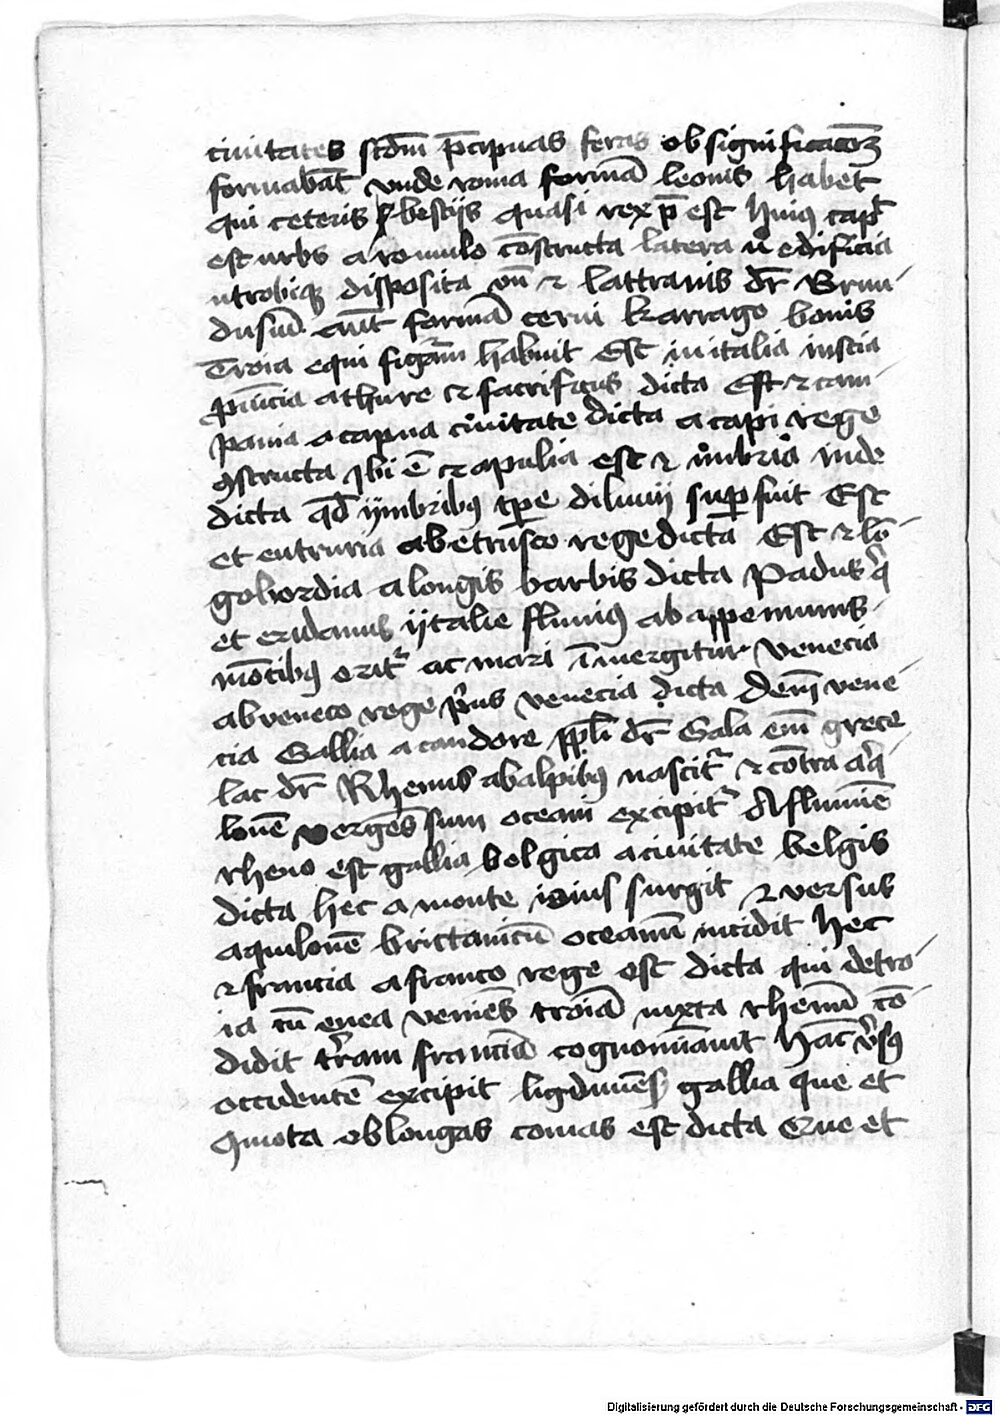 ciuitates scdm̄ p̄cipuas feras ob significacoꝫ
formabāt vnde roma formā leonis habet
qui ceteris bestijs quasi rex p̄est huiꝰ capᵗ
est urbs a romulo cōstructa latera ū edificia
utrobiqꝫ disposita vn̄ ⁊ lattranis dr̄ Brun
dusiū aut̄ formā cerui karrago bouis
Troia equi figurām habuit Est in italia inscia
ꝓuīcia athure ⁊ sacrificijs dicta Est ⁊ cam
pania a capua ciuitate dicta a capi rege
ꝯstructa Ibi ē ⁊ apulia est ⁊ vmbria inde
dicta qd̄ ymbribꝰ tꝑe diluuij suꝑfuit Est
et eutruria ab etrusco rege dicta Est ⁊ lō
gobordia a longis barbis dicta Padus q̄
et eridanus ytalie fluuiꝰ ab appeninnis
mōtibꝰ oritᷣ ac mari īmergitur Venecia
ab veneto rege pᷤus venecia dicta Dem̄ vene
cia Gallia a candore ppl̄i dr̄ Gala em̄ grece
lac dr̄ Rhenus ab alpibꝰ nascitᷣ ⁊ cōtra aq̄
lonē vergēs sum oceani excipitᷣ A fluuiē
rheno est gallia belgica a ciuitate belgis
dicta hec a monte iouis surgit ⁊ versus
aquilonē brictanicū oceanū incidit Hec
⁊ francia a franco rege est dicta qui de tro
ia cū enea veniēs troiā iuxta rhenū cō
didit tr̄am franciā cognomīauit Hāc v̄sꝰ
occidentē excipit ligdunēsꝭ gallia que et
Quiota ob longas comas est dicta Que et
Digitalisierung gefördert durch die Deutsche Forschungsgemeinschaft - DFG